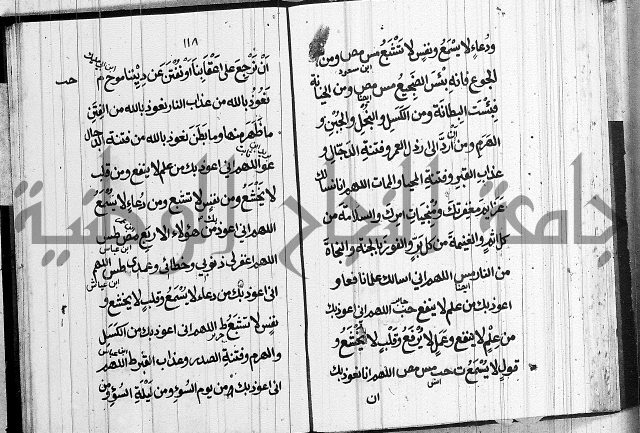 ودعاء لا يسمع ونفس لا تشبع مس مص ومن
الجوع فانه بئس الضجيع مس مص ومن الخيانة
ابن مسعود
فبئست البطانة ومن الكسل والبخل والجبن و
ايضا
الهرم ومن ان أرد الى رذل العمر وفتنة الدجال و
عذاب القبر وفتنة المحيا والممات اللهم انا نسألك
عزايم مغفرتك ومنجيات امرك والسلامة من
كل اثم والغنيمة من كل بر والفوز بالجنة والنجاة
من النار مس اللهم انى اسالك علما نافعا و
ايضا
اعوذ بك من علم لا ينفع حب اللهم انى اعوذ بك
جابر
من علم لا ينفع وعمل لا يرفع وقلب لا يخشع و
قول لا يسمع حب مس مص اللهم انا نعوذ بك
ان
١١٨
أن نرجع على اعقابنا او نفتن عن ديننا موخ م
حب
نعوذ بالله من عذاب النار نعوذ بالله من الفتن
ما ظهر منها وما بطن نعوذ بالله من فتنة الدجال
عو اللهم انى اعوذ بك من علم لا ينفع ومن قلب
لا يخشع ومن نفس لا تشبع ومن دعاء لا يسمع
اللهم انى اعوذ بك من هؤلاء الاربع مص طس
ابن عباس
اللهم اغفر لى ذنوبي وخطائى وعمدى طس اللهم
ابن عباس
انى اعوذ بك من دعاء لا يسمع وقلب لا يخشع و
نفس لا تشبع ط اللهم انى اعوذ بك من الكسل
جرير
والهرم وفتنة الصدر وعذاب القبر ط اللهم
انى اعوذ بك من يوم السوء ومن ليلة السوء ومن
جامعة النجاح الوطنية